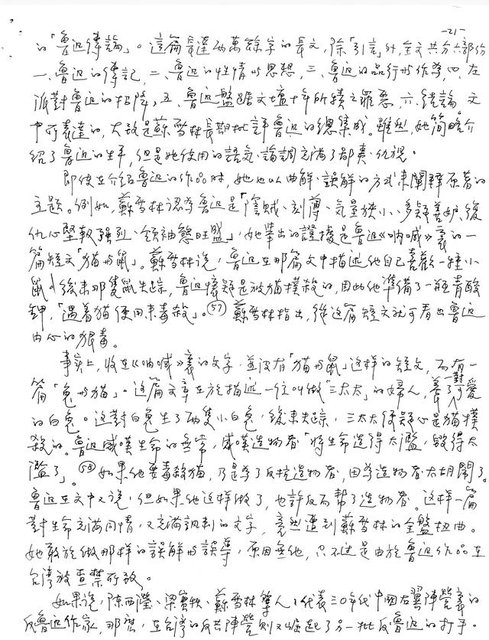 -21-
的「魯迅傳論」。這篇長達兩萬餘字的長文,除「引言」外,全文共分六部份
一、魯迅的傳記,二、魯迅的性情與思想,三、魯迅的品行與作學,四、左
派對魯迅的招降,五、魯迅盤踞文壇十年所積之罪惡,六、結論。文
中可表達的,大致是蘇雪林長期批評魯迅的總集成。雖然她簡略介
紹了魯迅的生平,但是她使用的語氣、論調充滿了鄙棄、仇視。
即使在介紹魯迅的作品時,她也以曲解、誤解的方式來闡釋原著的
主題。例如,蘇雪林認為魯迅是「陰賊、刻薄、氣量狹小、多疑善妒、復
仇心堅靱強烈、領袖慾旺盛」,她舉出的證據是魯迅《吶喊》裏的一
篇短文「貓與鼠」。蘇雪林說,魯迅在那篇文中描述他自己喜歡一種小
鼠,後來那隻鼠失踪,魯迅懷疑是被貓撲殺的,因此他準備了一瓶青酸
鉀,「遇着貓便用來毒殺。」(57) 蘇雪林指出,從這篇短文就可看出魯迅
內心的狠毒。
事實上,收在《吶喊》裏的文字,並沒有「貓與鼠」這樣的短文,而有一
篇「兔與貓」。這篇文章在於描述一位叫做「三太太」的婦人,養了一對可愛
的白兔。這對白兔生了兩隻小白兔,後來失踪,三太太懷疑必是貓撲
殺的。魯迅感嘆生命的無常,感嘆造物者「將生命造得太濫,毀得太
濫了」。(58) 如果他要毒殺貓,乃是為了反抗造物者,因為造物者太胡鬧了。
魯迅在文中又說,但如果他這樣做了,也許反而幫了造物者。這樣一篇
對生命充滿同情,又充滿諷刺的文字,竟然遭到蘇雪林的全盤扭曲。
她敢於做那樣的誤解與誤導,原因無他,只不過是由於魯迅作品在
台灣被查禁所致。
如果說,陳西瀅、梁實秋、蘇雪林等人,代表三〇年代中國右翼陣營裏的
反魯迅作家,那麼,在台灣的反共陣營則又崛起了另一批反魯迅的打手。